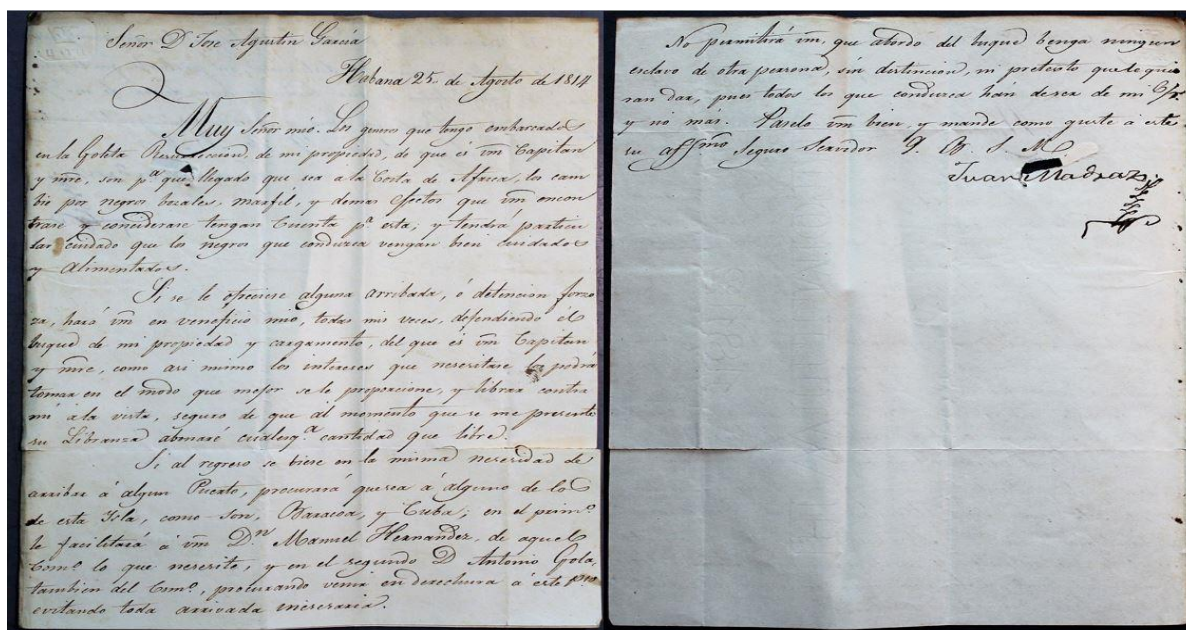 Señor D Jose Agustin García
Habana 25 de Agosto de 1814
Muy Señor mio. Los generos que tengo embarcados
en la Goleta Resurreccion, de mi propiedad, de que és vm Capitan
y mre, son pª que llegado que sea a la Costa de Africa, los cam
bie por negros bozales, marfil, y demas efectos que vm encon
trase y considerase tengan Cuenta pª esta; y tendrá particu
lar cuidado que los negros que conduzca vengan bien cuidados
y alimentados.
Si se le ofreciese alguna arribada, ó detencion forzo
za, hará vm en veneficio mio, todas mis veces, defendiendo el
buque de mi propiedad y cargamento, del que és vm Capitan
y mre, como asi mimo los intereses que necesitase los podrá
tomar en el modo que mejor se le proporcione, y librar contra
mi á la vista, seguro de que al momento que se me presente
su Libranza abonaré cualesqª cantidad que libre.
Si al regreso se biese en la misma necesidad de
arribar á algun Puerto, procurará que sea á alguno de los
de esta Ysla, como son, Baracoa, y Cuba; en el primº
le facilitará á vm Dn Manuel Hernandez, de aquel
Comº lo que necesite, y en el segundo D Antonio Gola,
tambien del Comº, procurando venir en derechura á este pto
evitando toda arrivada inecesaria.
No permitirá vm, que abordo del buque benga ningun
esclavo de otra persona, sin distincion, ni pretesto que le quie
ran dar, pues todos los que conduzca han de ser de mi C/ta
y no más. Paselo vm bien, y mande como guste á este
su affmo Seguro Servidor Q. B. S. M
Juan Madrazo